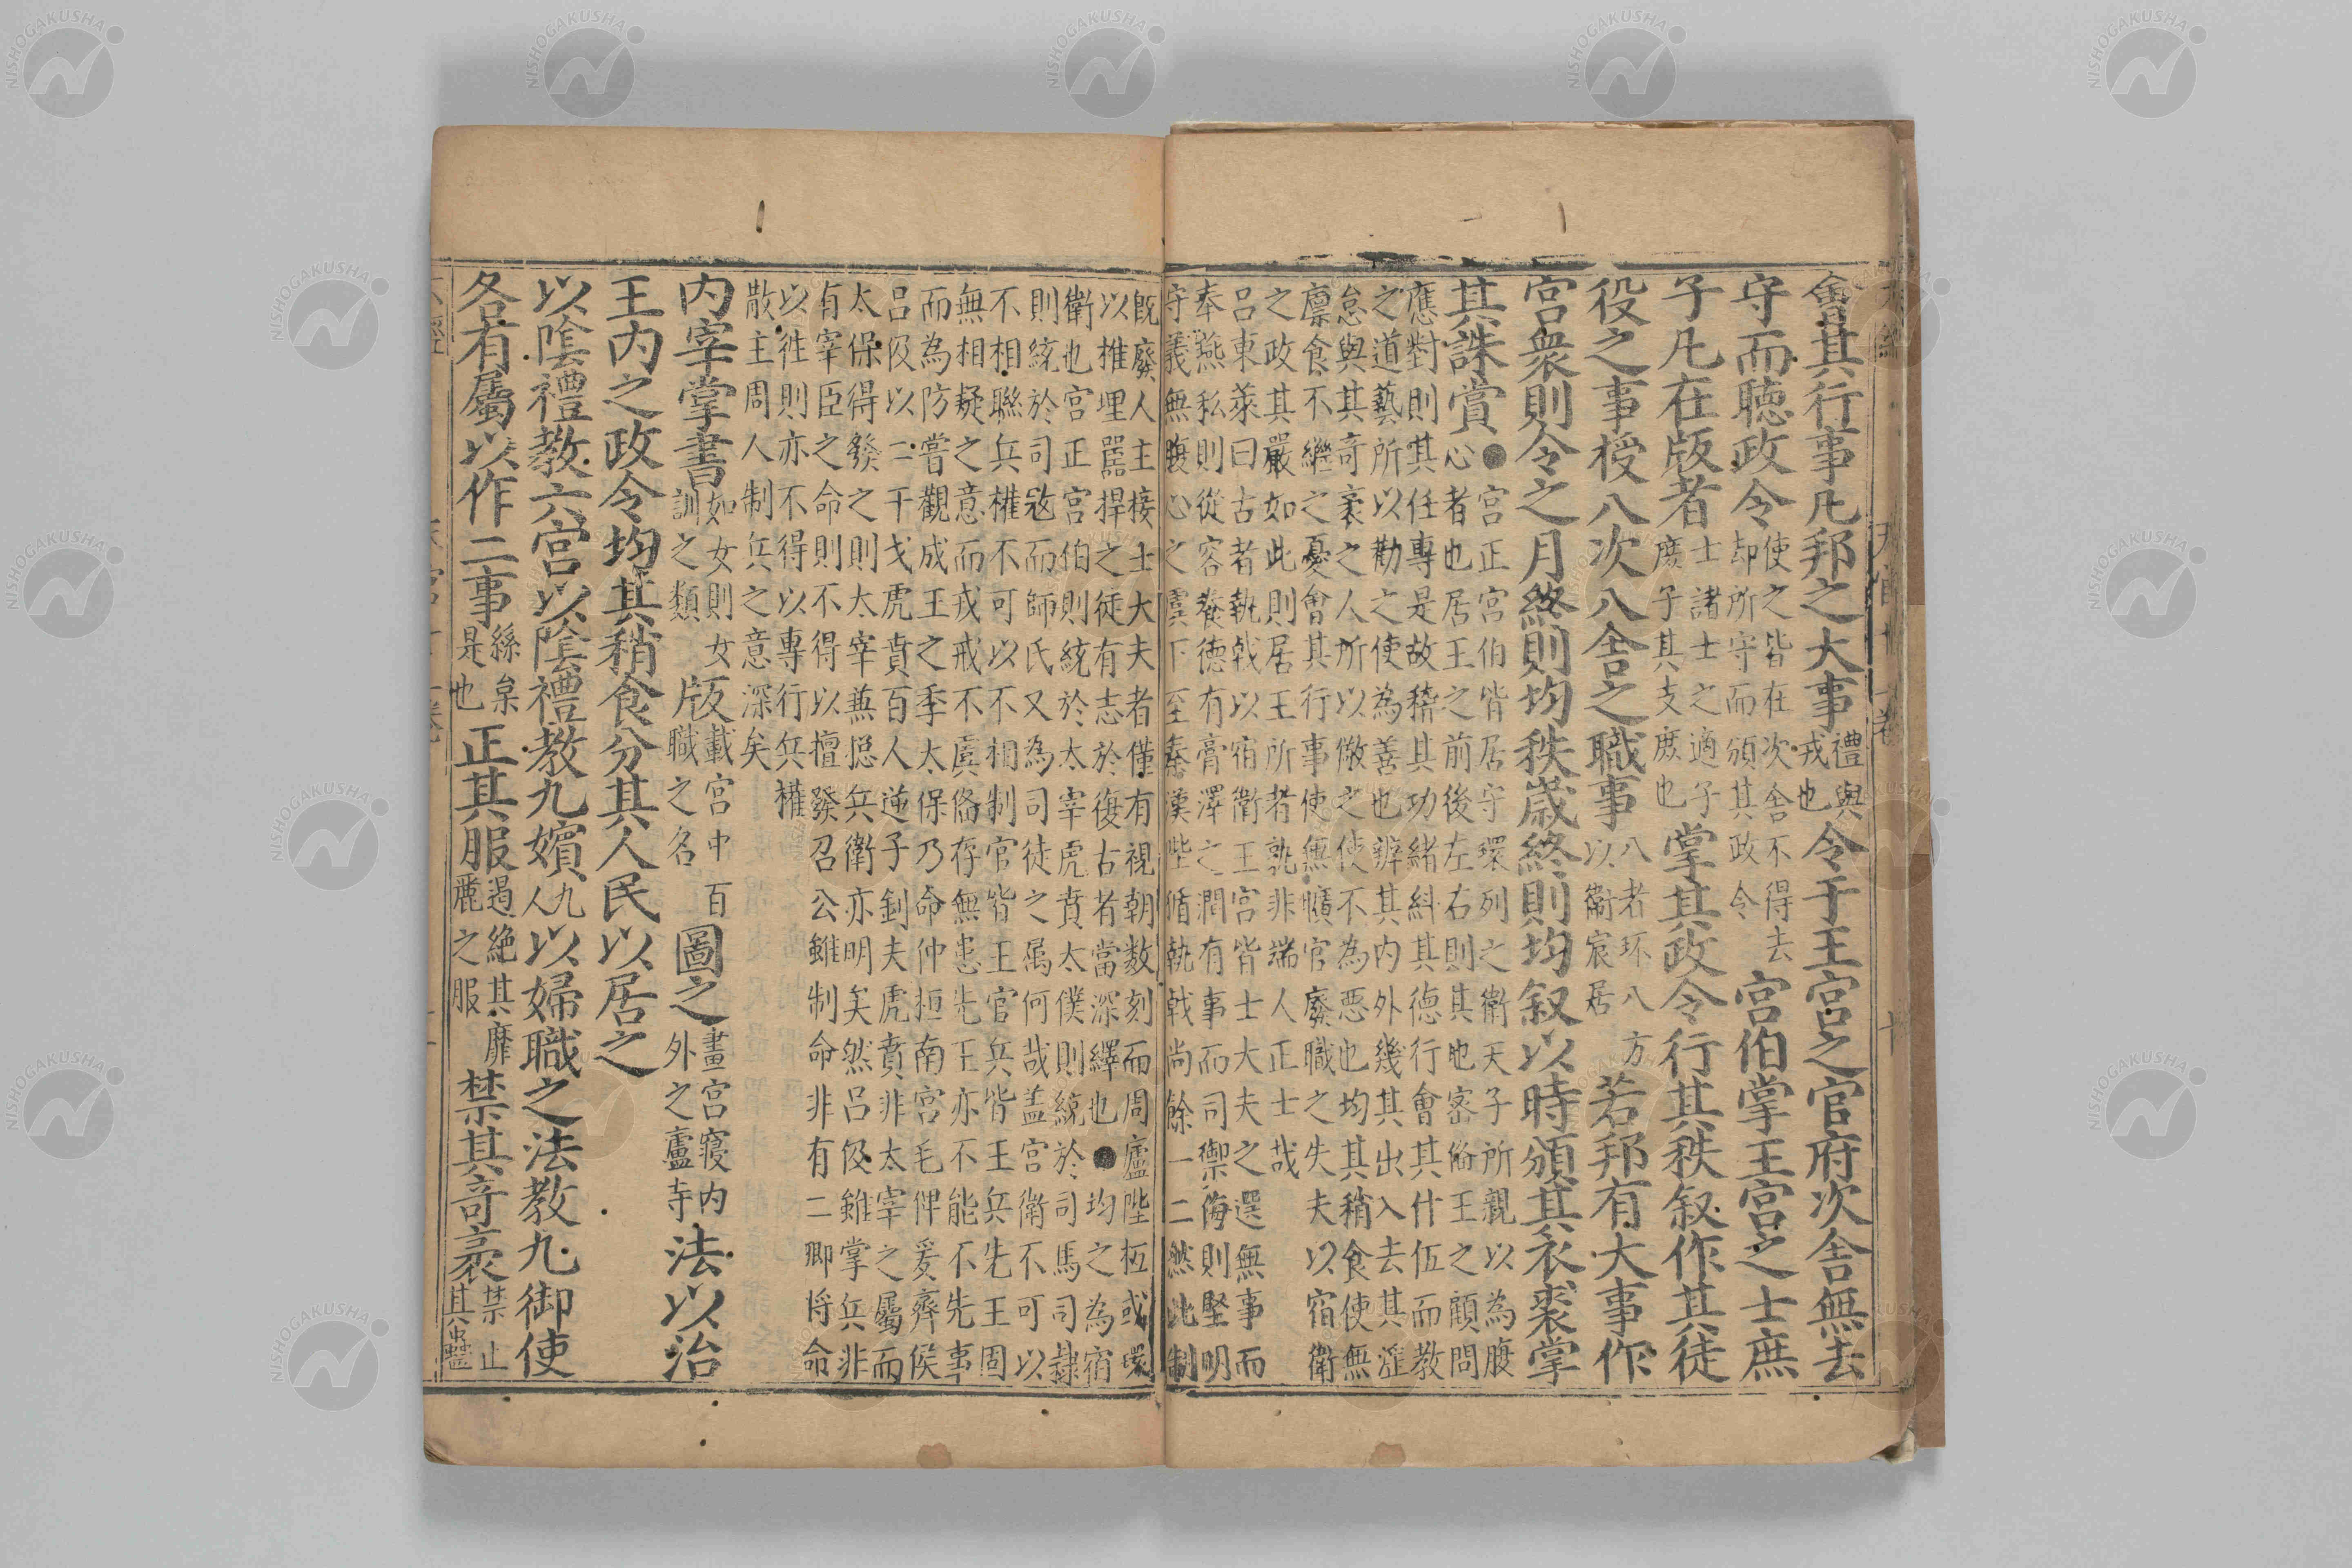 會其行事凡邦之大事禮與戎也令于王宮之官府次舍無去
守而聽政令使之皆在次舍不得去却所守而頒其政令宮伯掌王宮之士庶
子凡在版者士諸士之適子庶子其支庶也掌其政令行其秩叙作其徒
役之事授八次八舍之職事八者环八方以衛宸居若邦有大事作
宮衆則令之月終則均秩歲終則均叙以時頒其衣裘掌
其誅賞●宮正宮伯皆居守環列之衛天子所親以為腹
心者也居王之前後左右則其地宻偹王之顧問
應對則其任專是故稽其功緒糾其德行會其什伍而教
之道藝所以勸之使為善也辨其内外幾其出入去其淫
怠與其奇衺之人所以儆之使不為惡也均其稍食使無
廪食不繼之憂會其行事使無曠官廢職之失夫以宿衛
之政其嚴如此則居王所者孰非端人正士哉
呂東萊曰古者執戟以宿衛王宮皆士大夫之選無事而
奉燕私則從容養德有膏澤之潤有事而司禦侮則堅明
守義無腹心之虞下至秦漢陛楯執戟尚餘一二然此制
既廢人主接士大夫者僅有視朝数刻而周廬陛桓或環
以椎埋嚚捍之徒有志於復古者當深繹也●均之為宿
衛也宮正宮伯則統於太宰虎賁太僕則統於司馬司隷
則統於司冦而師氏又為司徒之属何哉盖宮衛不可以
不相聯兵權不可以不相制官皆王官兵皆王兵先王固
無相疑之意而戎戒不虞偹存無患先王亦不能不先事
而為防嘗觀成王之季太保乃命仲桓南宮毛俾爰齊侯
吕伋以二干戈虎賁百人逆子釗夫虎賁非太宰之屬而
太保得發之則太宰兼揔兵衛亦明矣然吕伋雖掌兵非
有宰臣之命則不得以擅發召公雖制命非有二卿将命
以徃則亦不得以專行兵權
散主周人制兵之意深矣
内宰掌書如女則女訓之類版載宮中百職之名圖之畫宮寝内外之廬寺法以治
王内之政令均其稍食分其人民以居之
以隂禮教六宮以隂禮教九嬪九人以婦職之法教九御使
各有屬以作二事絲枲是也正其服遏絶其靡麗之服禁其奇衺禁止其蠱